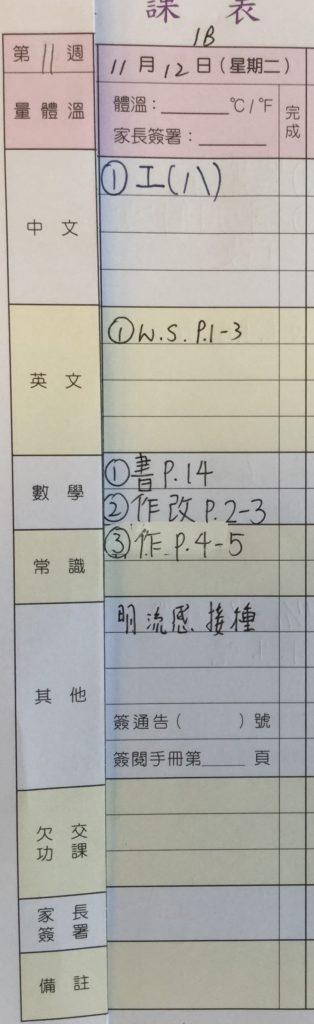 課 表
1B
第 11 週
11 月 12 日(星期二)
量 體 溫
體溫:______ °C/°F
家長簽署:______
完成
中 文
① 工(八)
英 文
① W.S. P.1-3
數 學
① 書 P.14
② 作 改 P.2-3
常 識
③ 作 P.4-5
其 他
明 流感 接種
簽通告( )號
簽閱手冊第____ 頁
欠 交
功 課
家 長
簽 署
備 註